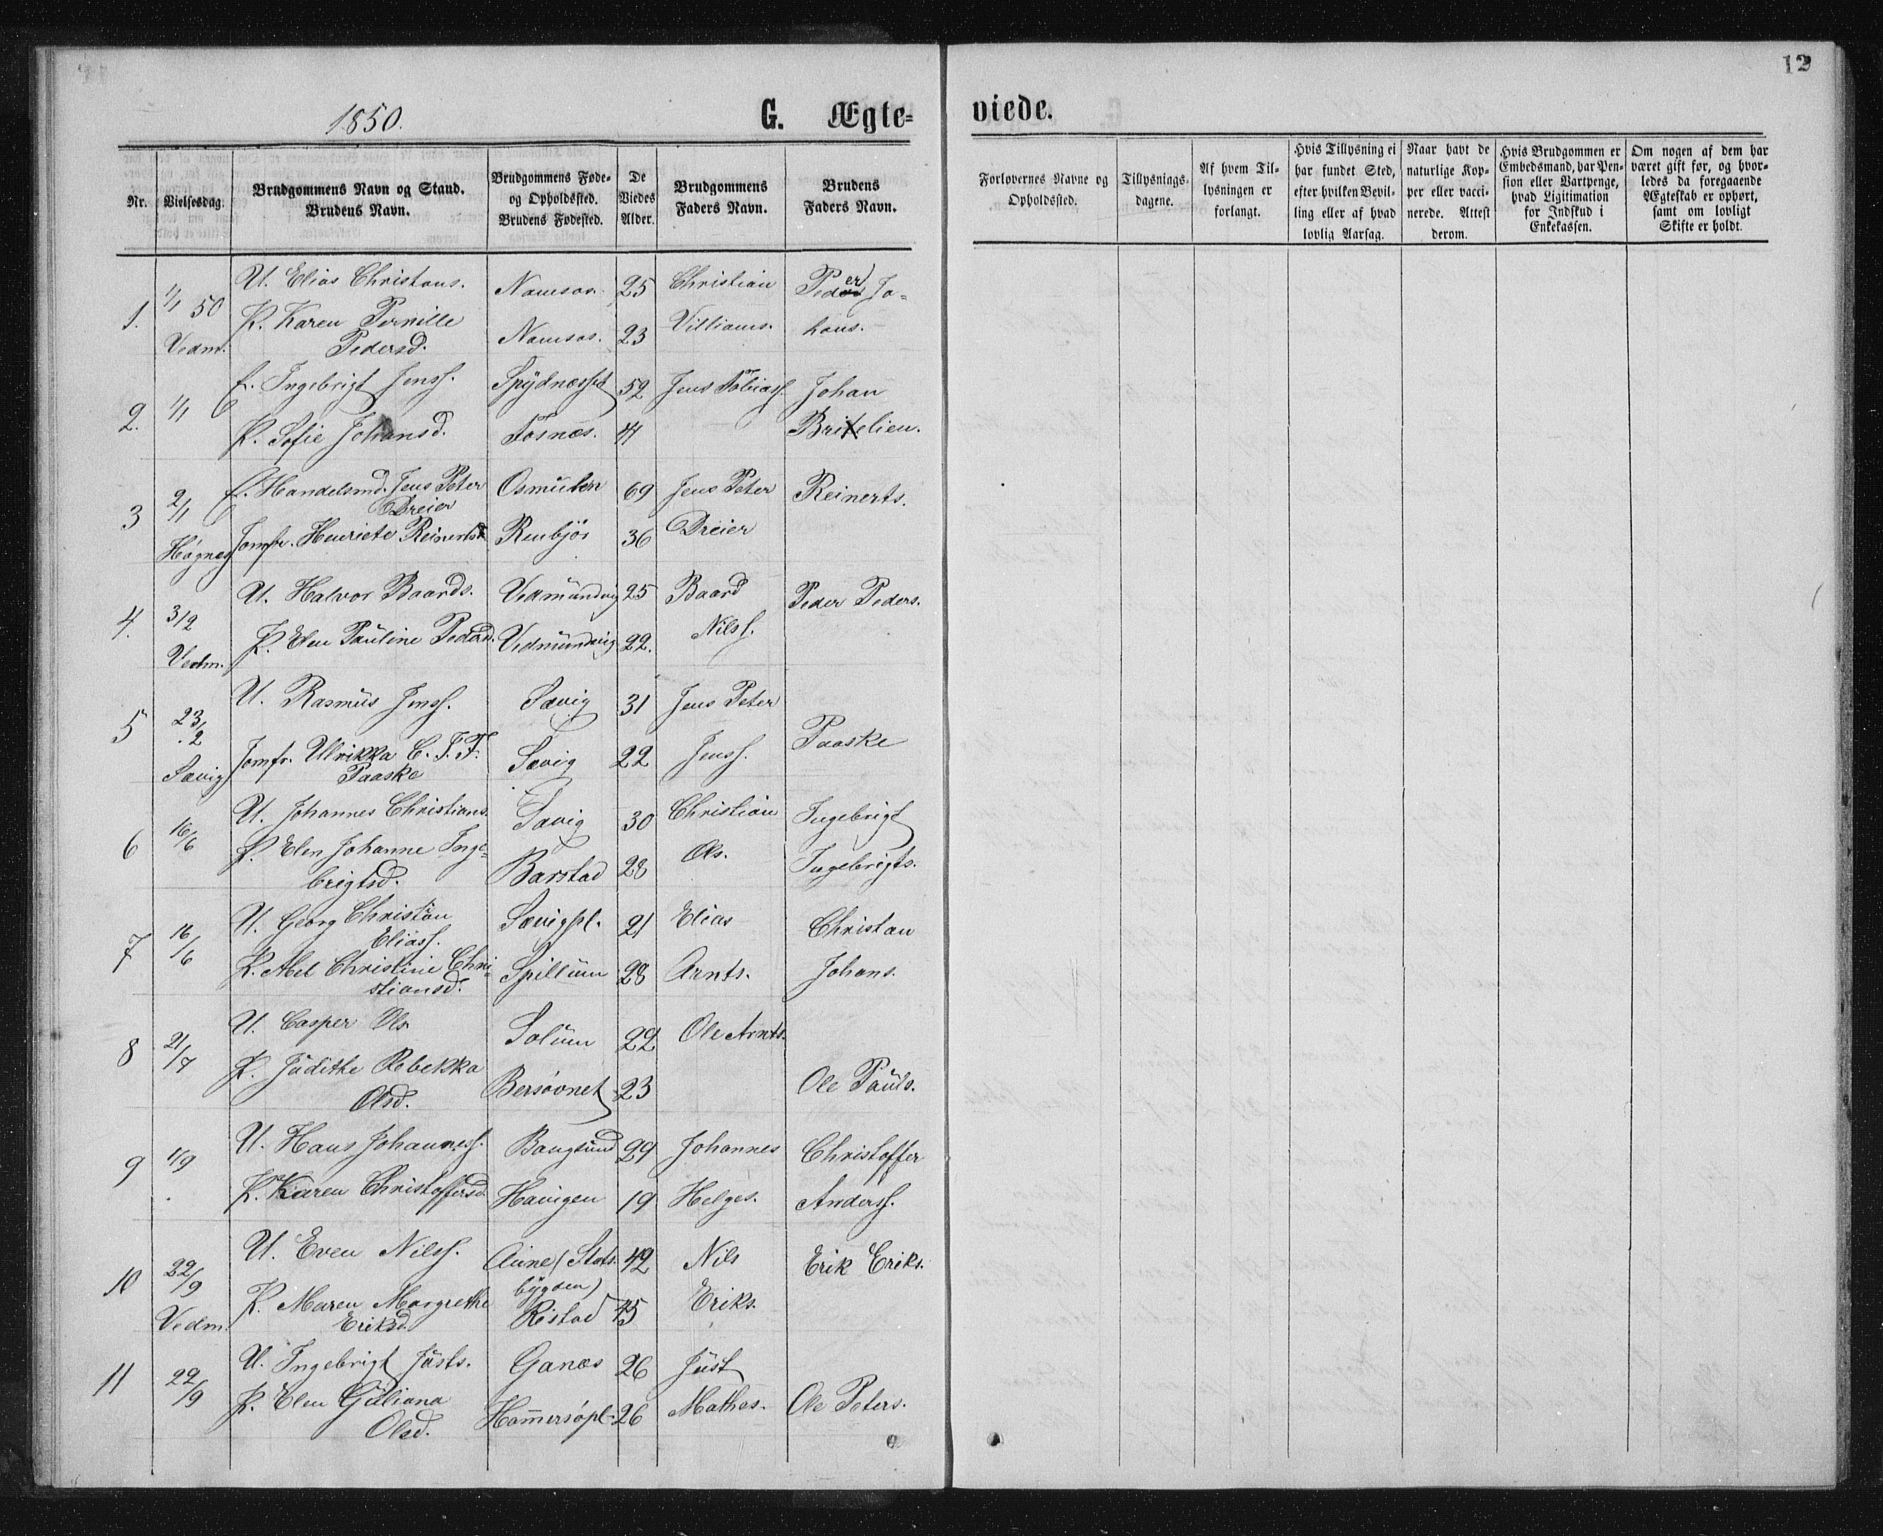 12
1850.
G. Ægte=
viede.
Nr.
Vielsesdag.
Brudgommens Navn og Stand.
Brudens Navn.
Brudgommens Føde-
og Opholdssted.
Brudens Fødested.
De
Viedes
Alder.
Brudgommens
Faders Navn.
Brudens
Faders Navn.
Forlovernes Navne og
Opholdssted.
Tillysnings-
dagene.
Af hvem Til-
lysningen er
forlangt.
Hvis Tillysning ei
har fundet Sted,
efter hvilken Bevil-
ling eller af hvad
lovlig Aarsag.
Naar havt de
naturlige Kop-
per eller vacci-
nerede. Attest
derom.
Hvis Brudgommen er
Embedsmand, har Pen-
sion eller Vartpenge,
hvad Ligitimation
for Indskud i
Enkekassen.
Om nogen af dem har
været gift før, og hvor-
ledes da foregaaende
Ægteskab er ophørt,
samt om lovligt
Skifte er holdt.
1. 1/1 50 U. Elias Christans. Namsos. 25 Christian Peder Jo-
P. Karen Pernille Namsos. 23 Villiams. hans.
Vedm. Pedersd.
2. 1/1 E. Ingebrigt Jenss. Spydnæsset 52 Jens Tobiass. Johan
P. Sofie Johansd. Fosnæs. 44 Britelien.
3 2/1 E. Handelsmd. Jens Peter Osmulen 69 Jens Peter Reinerts.
Dreier
Høgnes Jomfr. Henriete Reinertsd Renbjør 36 Dreier
4. 3/2 U. Halvor Baards. Vedmundvig 25 Baard Peder Peders.
Vedm. P. Elen Pauline Pedersd. Vedmundvig 22. Nilss.
5 23/2 U. Rasmus Jenss. Sævig 31 Jens Peter
Sævig Jomfr. Ulrikka C. F. F. Sævig 22 Jenss. Paaske
Paaske
6 16/6 U. Johannes Christians. Sævig 30 Christian Ingebrigt
P. Elen Johanne Inge- Barstad 28 Ols. Ingebrigts.
brigtsd.
7 16/6 U. Georg Christian Sævigpl. 21 Elias Christan
Eliass.
P. Abel Christine Chri- Spillum 28 Arnts. Johans.
stiansd.
8 21/7 U. Casper Ols. Solum 22 Ole Arnts.
P. Judithe Rebekka Bersøvnet 23 Ole Pauls.
Olsd.
9 1/9 U. Hans Johanness. Bangsund 29 Johannes Christoffer
P. Karen Christoffersd. Havigen 19 Helges. Anderss.
10 22/9 U. Even Nilss. Aune (Stods- 42 Nils Erik Eriks.
bygden)
P. Maren Margrethe Ristad 45 Eriks.
Vedm. Eriksd.
11 22/9 U. Ingebrigt Justs. Ganæs 26 Just
P. Elen Guliana Hammersøpl. 26 Mathes. Ole Peters.
Olsd.